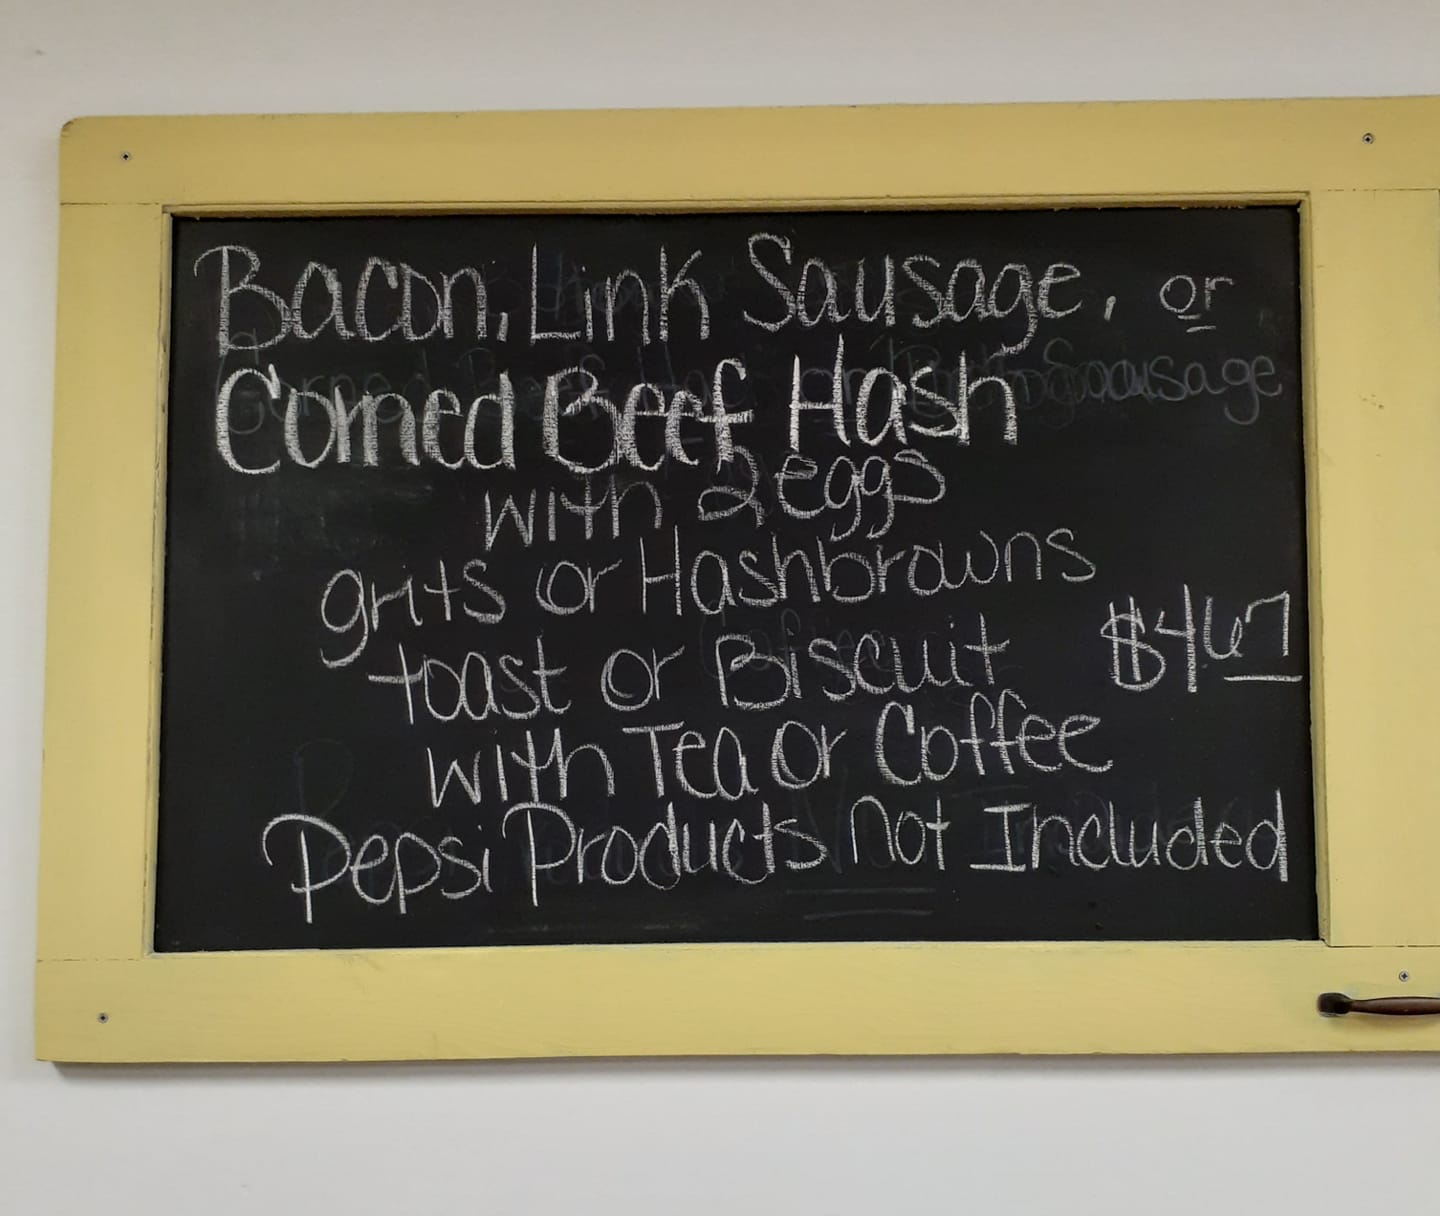 Bacon, Link Sausage, or
Corned Beef Hash
with 2 eggs
grits or Hashbrowns
toast or Biscuit $4 67
with Tea or Coffee
Pepsi Products Not Included